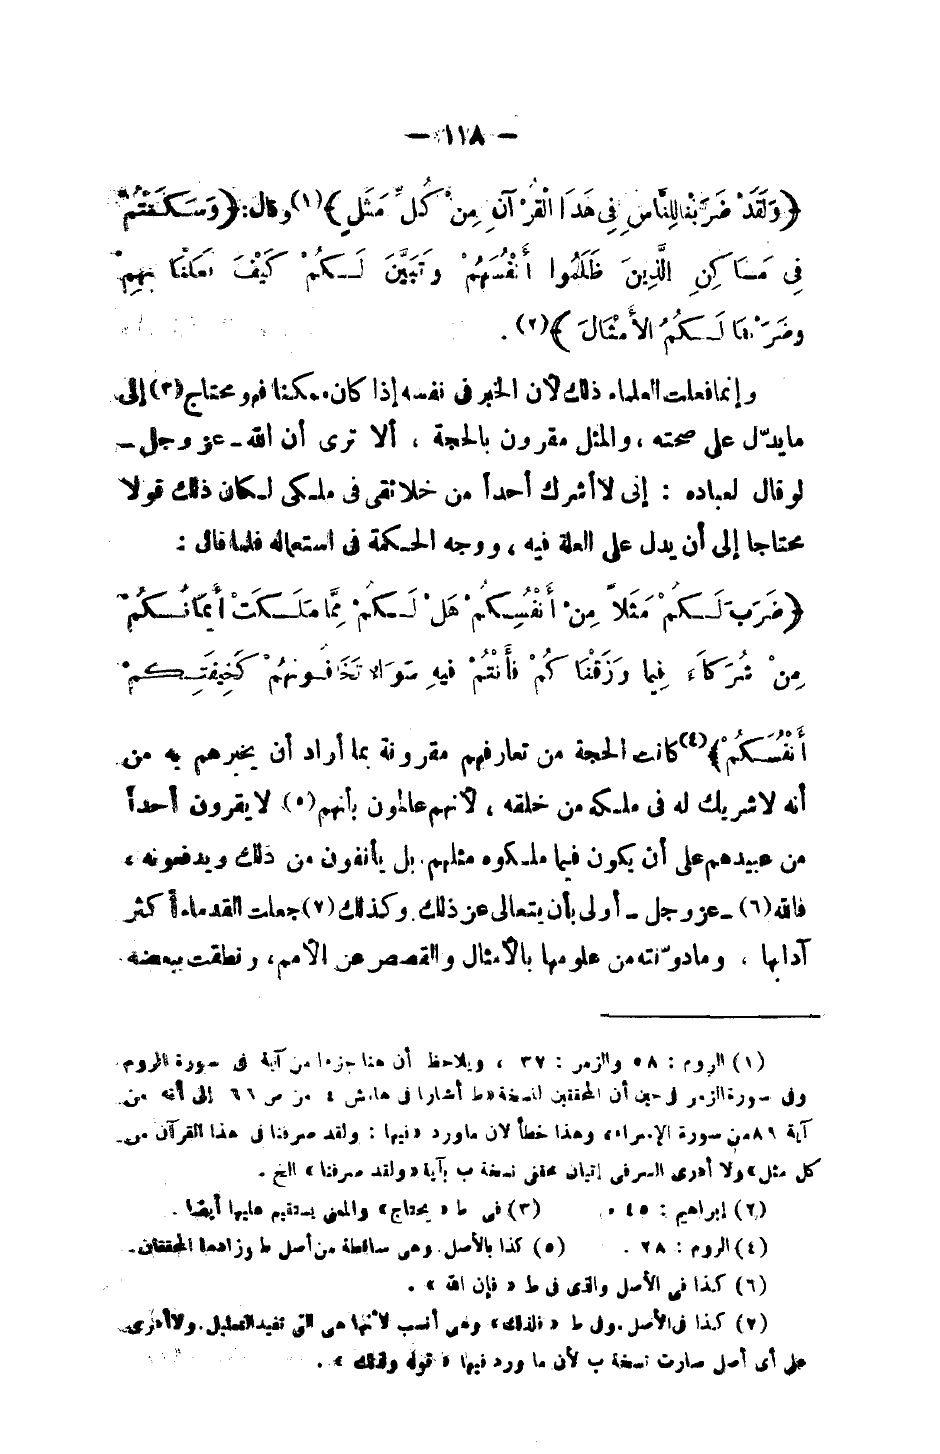 — ١١٨ —
﴿وَلَقَدْ ضَرَبْنَا لِلنَّاسِ فِى هَذَا الْقُرْآنِ مِنْ كُلِّ مَثَلٍ﴾(١) وقال: ﴿وَسَكَنْتُمْ
فِى مَسَاكِنِ الَّذِينَ ظَلَمُوا أَنْفُسَهُمْ وَتَبَيَّنَ لَكُمْ كَيْفَ فَعَلْنَا بِهِمْ
وضَرَبْنَا لَكُمُ الأَمْثَالَ﴾(٢) .
وإنما فعلت العلماء ذلك لأن الخبر فى نفسه إذا كان ممكنا فهو محتاج(٣) إلى
ما يدلّ على صحته ، والمثل مقرون بالحجة ، ألا ترى أن الله ـ عز وجل ـ
لو قال لعباده : إنى لا أشرك أحداً من خلائقى فى ملكى لكان ذلك قولا
محتاجا إلى أن يدل على العلة فيه ، ووجه الحكمة فى استعماله فلما قال :
﴿ضَرَبَ لَكُمْ مَثَلاً مِنْ أَنْفُسِكُمْ هَلْ لَكُمْ مِمَّا مَلَكَتْ أَيْمَانُكُمْ
مِنْ شُرَكَاءَ فِيمَا رَزَقْنَاكُمْ فَأَنْتُمْ فِيهِ سَوَاءٌ تَخَافُونَهُمْ كَخِيفَتِكُمْ
أَنْفُسَكُمْ﴾(٤) كانت الحجة من تعارفهم مقرونة بما أراد أن يخبرهم به من
أنه لا شريك له فى ملكه من خلقه ، لأنهم عالمون بأنهم(٥) لا يقرون أحداً
من عبيدهم على أن يكون فيما ملكوه مثلهم. بل يأنفون من ذلك ويدفعونه ،
فالله(٦) ـ عز وجل ـ أولى بأن يتعالى عن ذلك. وكذلك(٧) جعلت القدماء أكثر
آدابها ، وما دوّنته من علومها بالأمثال والقصص عن الأمم، ونطقت ببعضه
(١) الروم : ٥٨ والزمر : ٢٧ ، ويلاحظ أن هنا جزءا من آية فى سورة الروم
وفى سورة الزمر فى حين أن المحققين لنسخة «ط» أشارا فى هامش ٤ من ص ٦٦ إلى أنه من
آية ٨٩ من سورة الإسراء، وهذا خطأ لأن ما ورد «فيها : ولقد صرفنا فى هذا القرآن من
كل مثل» ولا أدرى السر فى إتيان محققى نسخة ب بآية «ولقد صرفنا» الخ .
(٢) إبراهيم : ٤٥ . (٣) فى ط « يحتاج» والمعنى يستقيم عليها أيضا .
(٤) الروم : ٢٨ . (٥) كذا بالأصل. وهى ساقطة من أصل ط وزادها المحققان.
(٦) كذا فى الأصل والذى فى ط « فإن الله » .
(٧) كذا فى الأصل. وفى ط « فلذلك» وهى أنسب لأنها هى التى تفيد التعليل. ولا أدرى
على أى أصل سارت نسخة ب لأن ما ورد فيها « قوله وكذلك » .